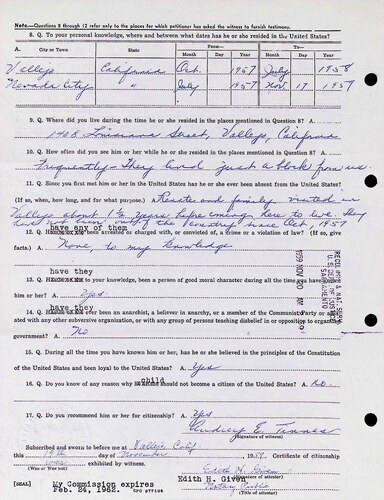 Note.—Questions 8 through 12 refer only to the places for which petitioner has asked the witness to furnish testimony.
8. Q. To your personal knowledge, where and between what dates has he or she resided in the United States?
A. City or Town State From— To—
Month Day Year Month Day Year
Vallejo California Oct. 1957 July 1958
Nevada City " July 1957 Nov. 17 1959
9. Q. Where did you live during the time he or she resided in the places mentioned in Question 8? A.
1408 Louisiana Street, Vallejo, California
10. Q. How often did you see him or her while he or she resided in the places mentioned in Question 8? A.
Frequently - They lived just a block from us.
11. Q. Since you first met him or her in the United States has he or she ever been absent from the United States?
(If so, when, how long, and for what purpose.) A. and family visited in
Vallejo about 1½ years before coming here to live. They
have not been out of the country since Oct, 1957
have any of them
12. Q. been arrested or charged with, or convicted of, a crime or a violation of law? (If so, give
facts.) A. None to my knowledge
have they
13. Q. To your knowledge, been a person of good moral character during all the time you have known
him or her? A. Yes
have they
14. Q. ever been an anarchist, a believer in anarchy, or a member of the Communist Party or affili-
ated with any other subversive organization, or with any group of persons teaching disbelief in or opposition to organized
government? A. No
15. Q. During all the time you have known him or her, has he or she believed in the principles of the Constitution
of the United States and been loyal to the United States? A. Yes
child
16. Q. Do you know of any reason why should not become a citizen of the United States? A. No
17. Q. Do you recommend him or her for citizenship? A. Yes
Audrey E.
(Signature of witness)
Subscribed and sworn to before me at Vallejo Calif.
this 19th day of November, 1959. Certificate of citizenship
was exhibited by witness.
(Was or Was not)
Edith H. Given
Edith H. Given
(Signature)
[SEAL] My Commission expires
Feb. 24, 1962.
Notary Public
GPO
1959 NOV 20 AM
SACRAMENTO